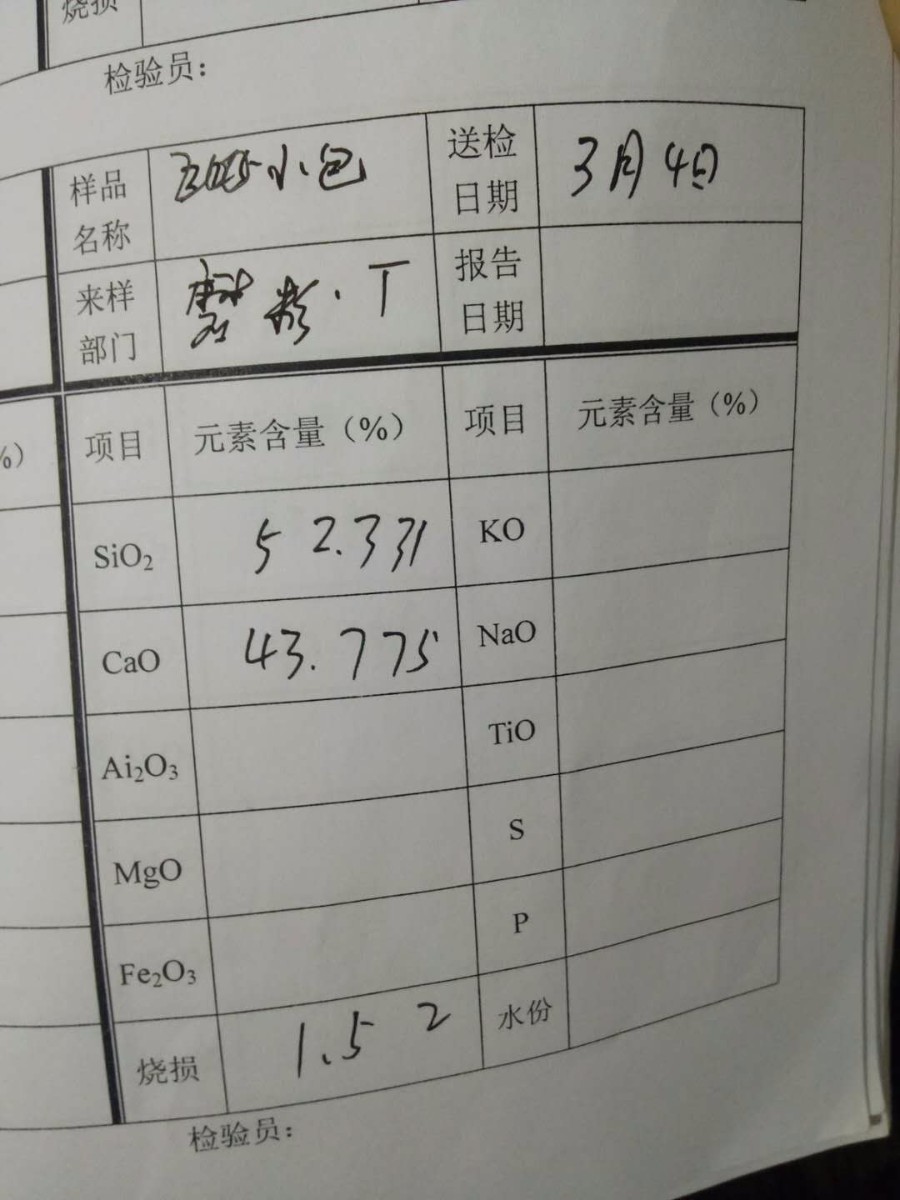 烧损
检验员：
样品名称 小包 送检日期 3月4日
来样部门 磨粉·T 报告日期
%）
项目 元素含量（%） 项目 元素含量（%）
SiO₂ 52.331 KO
CaO 43.775 NaO
Ai₂O₃ TiO
MgO S
Fe₂O₃ P
烧损 1.52 水份
检验员：